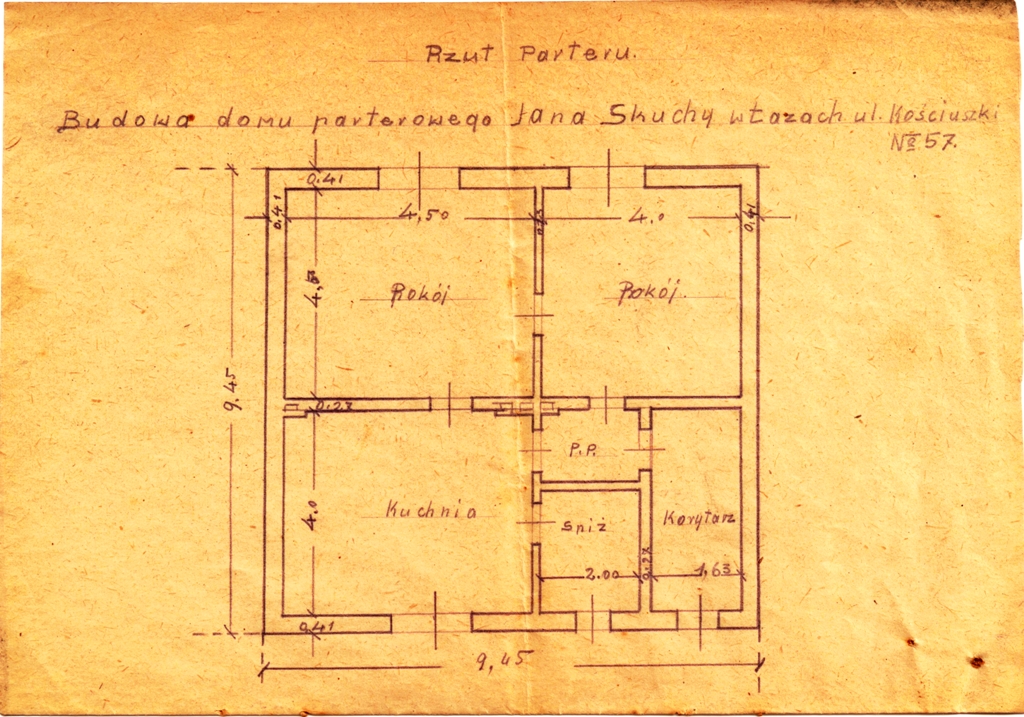 Rzut Parteru.
Budowa domu parterowego Jana Skuchy w Łazach ul. Kościuszki
№ 57.
0.41
0.41
4,50
4.0
0.41
Pokój
Pokój.
9.45
0.27
P.P.
4.0
Kuchnia
Spiż
Korytarz
0.27
2.00
1,63
0.41
9,45